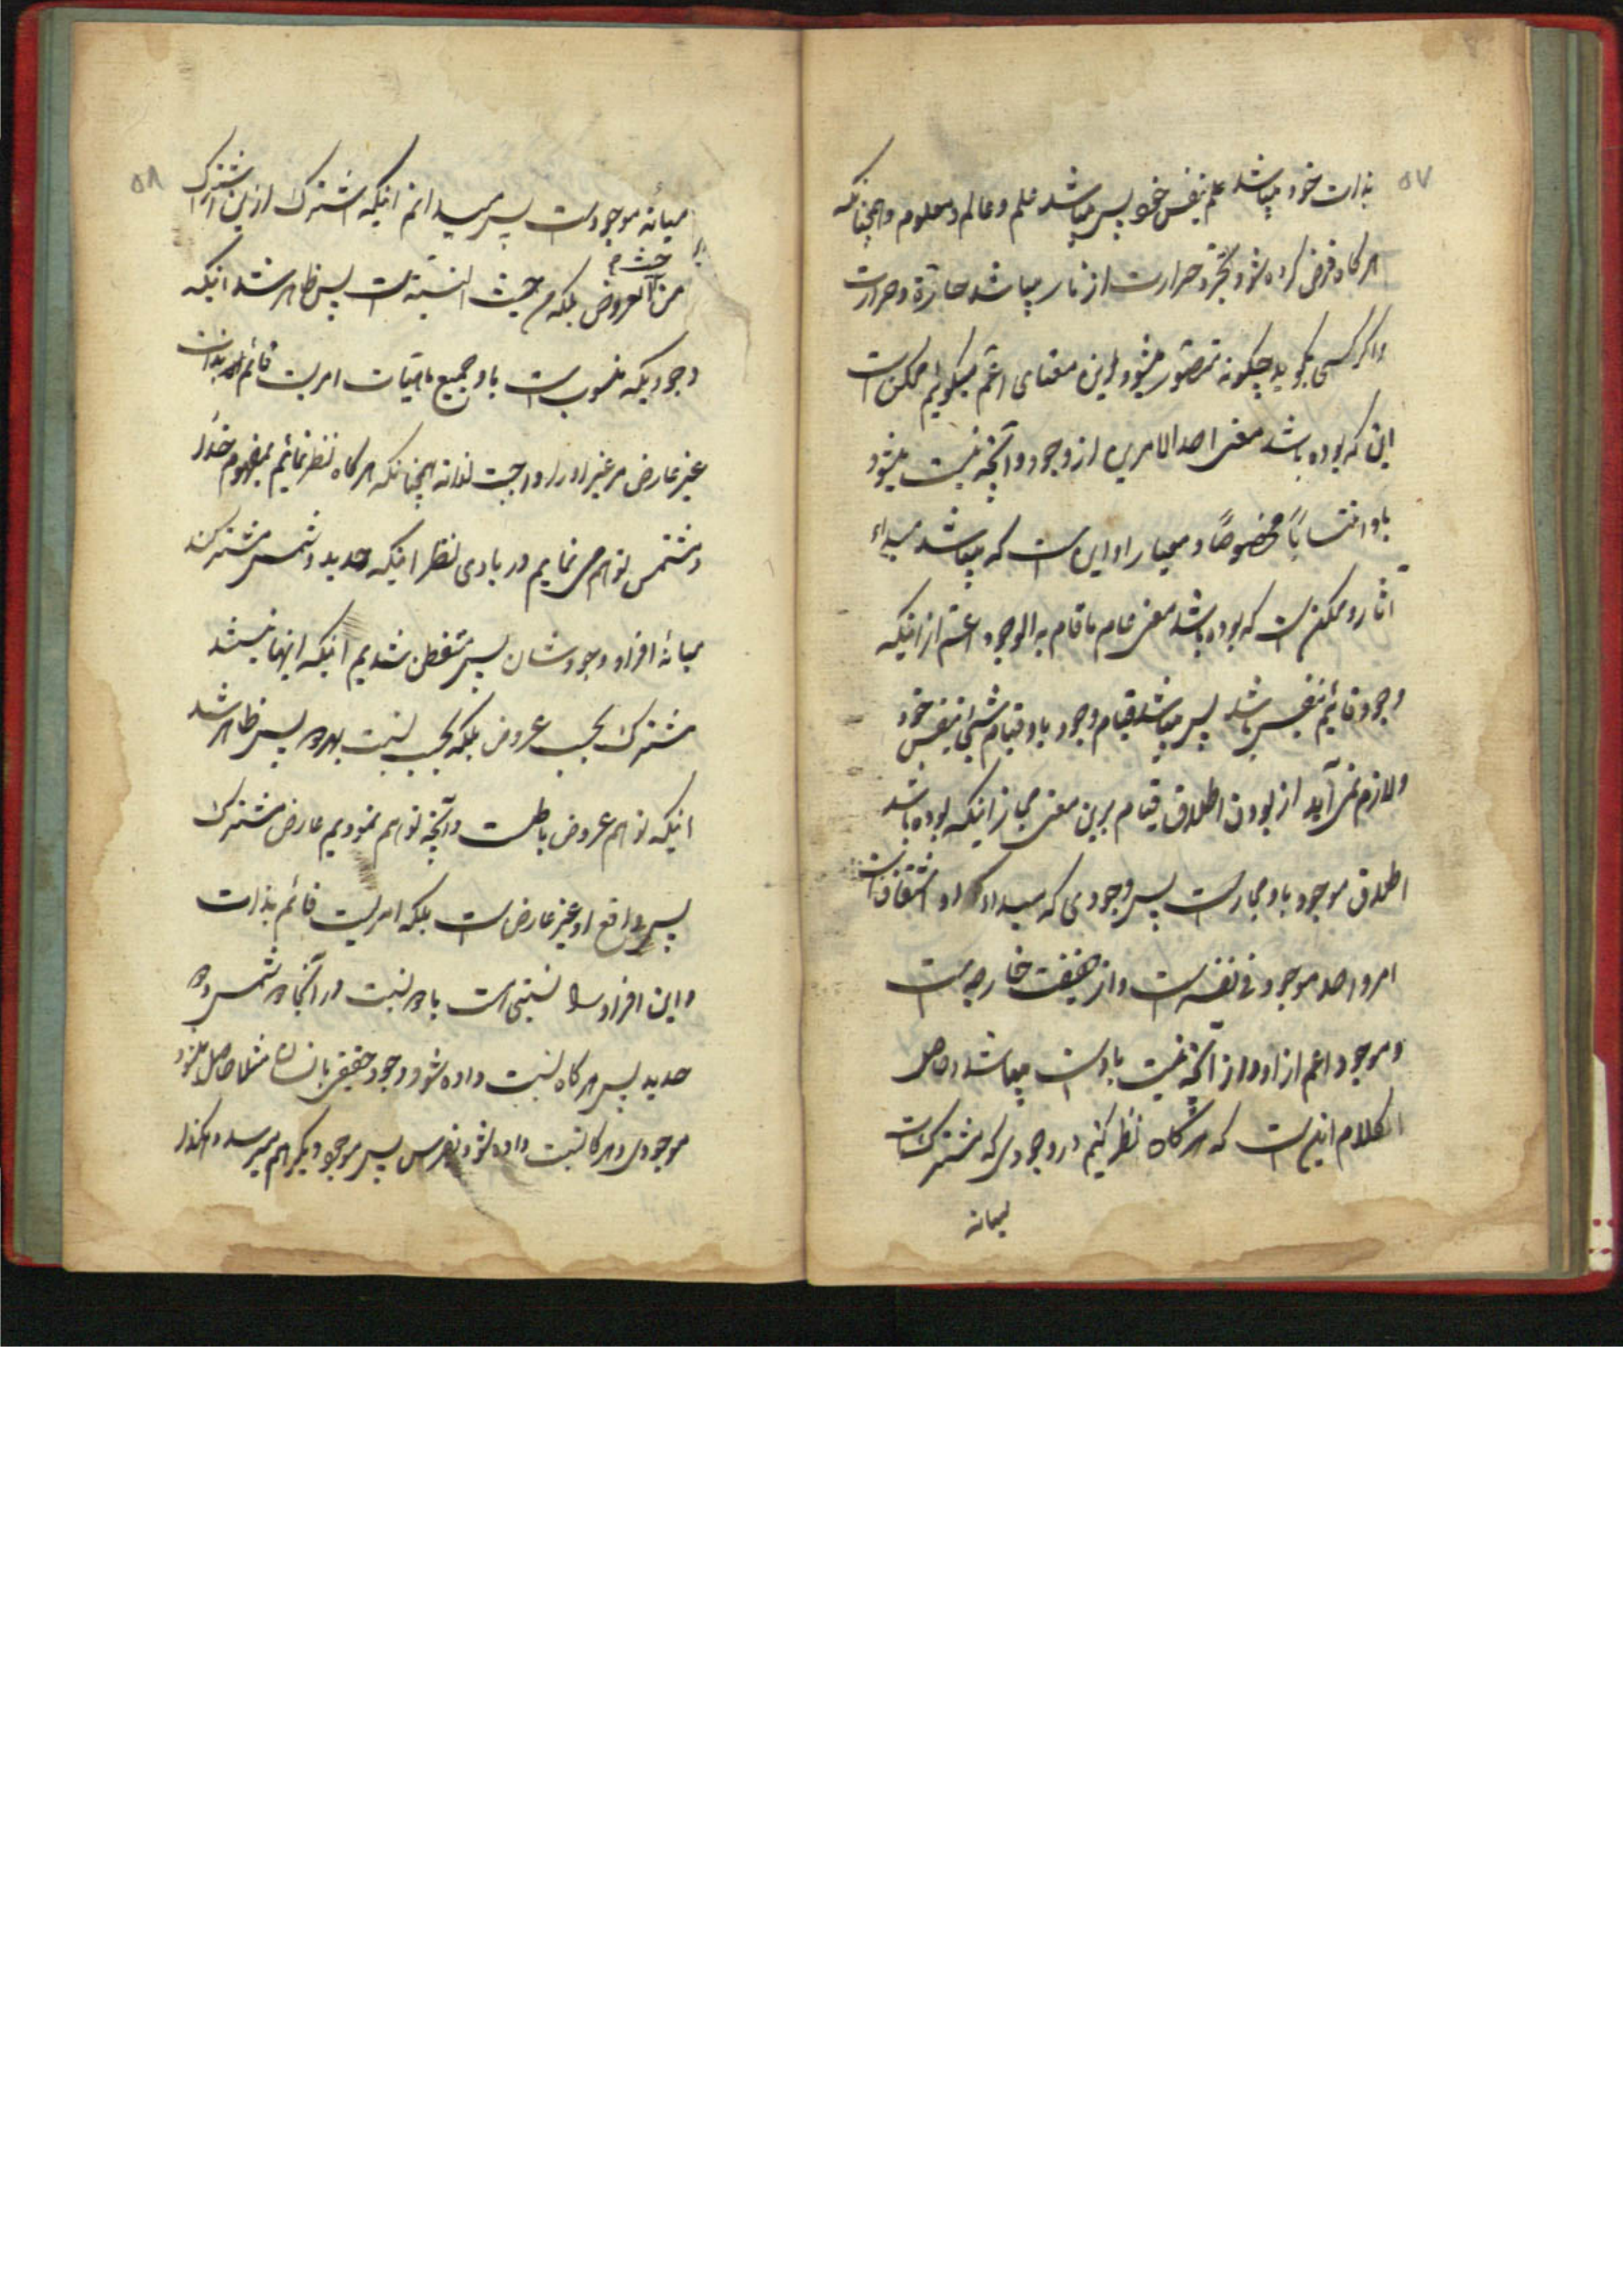 ۵۷
بذات خود میباشد علم بنفس خود پس میباشد علم و عالم و معلوم و همچنانکه
هرکاه فرض کرده شود تجرد حرارت از نار میباشد حارّة و حرارت
و اکر کسی بکوید چکونه متصوّر میشود این معنای اعمّ میکویم ممکن است
این که بوده باشد معنی احد الامرین از وجود و آنچه نسبت میشود
باو انتساباً مخصوصاً و معیار او این است که میباشد مبداء
آثار و ممکن است که بوده باشد معنی عام ما قام به الوجود اعمّ از اینکه
وجود قائم بنفس باشد پس میباشد قیام وجود باو قیام شئ بنفس خود
و لازم نمی‌آید از بودن اطلاق قیام برین معنی مجاز اینکه بوده باشد
اطلاق موجود باو مجاز است پس وجودی که مبداء اشتقاق است
امر واحد موجود فی نفسه است و از حقیقت خارجیه است
و موجود اعم از او و از آنچه نسبت باوست میباشد و حاصل
الکلام اینست که هرکاه نظر کنیم در وجودی که مشترک است
میانه
۵۸
میانهٔ موجودات پس میدانم اینکه اشتراک از این اشتراک
من حیث العروض بلکه من حیث النسبة است پس ظاهر شد اینکه
وجودیکه منسوب است باو جمیع ماهیّات امریست قائم بذات
غیر عارض مر غیر او را و واجبست لذاته همچنانکه هرکاه نظر نمائیم بمفهوم حدّاد
و مشمّس توهم می نمایم در بادی نظر اینکه حدید و شمس مشترکند
میانهٔ افراد وجودشان پس متفطن شدیم اینکه اینها نیستند
مشترک بحسب عروض بلکه بحسب نسبت بهردو پس ظاهر شد
اینکه توهم عروض باطلست و آنچه توهم نمودیم عارض مشترک
پس در واقع او غیر عارض است بلکه امریست قائم بذات
و این افراد را نسبتی است باو نسبت در آنجا شمس و
حدید پس هرکاه نسبت داده شود وجود حقیقی بانسان مثلا حاصل میشود
موجودی و هرکا نسبت داده شود بفرس پس موجود دیکر بهم میرسد و هکذا